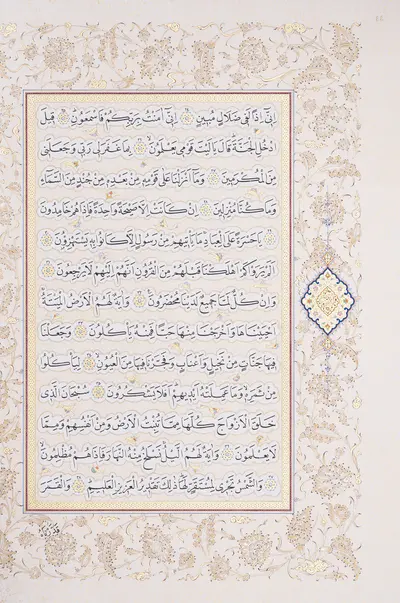 اِنّى اِذًا لَفى ضَلالٍ مُبينٍ ۞ اِنّى امَنْتُ بِرَبِّكُمْ فَاسْمَعُونِ ۞ قيلَ
ادْخُلِ الْجَنَّةَ قالَ يا لَيْتَ قَوْمى يَعْلَمُونَ ۞ بِما غَفَرَلى رَبّى وَ جَعَلَنى
مِنَ الْمُكْرَمينَ ۞ وَ ما اَنْزَلْنا عَلى قَوْمِه مِنْ بَعْدِه مِنْ جُنْدٍ مِنَ السَّماءِ
وَ ما كُنّا مُنْزِلينَ ۞ اِنْ كانَتْ اِلّا صَيْحَةً واحِدَةً فَاِذا هُمْ خامِدُونَ
۞ يا حَسْرَةً عَلَى الْعِبادِ ما يَأْتيهِمْ مِنْ رَسُولٍ اِلّا كانُوا بِه يَسْتَهْزِؤُنَ ۞
اَلَمْ يَرَوْا كَمْ اَهْلَكْنا قَبْلَهُمْ مِنَ الْقُرُونِ اَنَّهُمْ اِلَيْهِمْ لا يَرْجِعُونَ ۞
وَ اِنْ كُلٌّ لَمّا جَميعٌ لَدَيْنا مُحْضَرُونَ ۞ وَ ايَةٌ لَهُمُ الْاَرْضُ الْمَيْتَةُ
اَحْيَيْناها وَ اَخْرَجْنا مِنْها حَبًّا فَمِنْهُ يَأْكُلُونَ ۞ وَ جَعَلْنا
فيها جَنّاتٍ مِنْ نَخيلٍ وَ اَعْنابٍ وَ فَجَّرْنا فيها مِنَ الْعُيُونِ ۞ لِيَأْكُلُوا
مِنْ ثَمَرِه وَ ما عَمِلَتْهُ اَيْديهِمْ اَفَلا يَشْكُرُونَ ۞ سُبْحانَ الَّذى
خَلَقَ الْاَزْواجَ كُلَّها مِمّا تُنْبِتُ الْاَرْضُ وَ مِنْ اَنْفُسِهِمْ وَ مِمّا
لا يَعْلَمُونَ ۞ وَ ايَةٌ لَهُمُ اللَّيْلُ نَسْلَخُ مِنْهُ النَّهارَ فَاِذا هُمْ مُظْلِمُونَ
۞ وَ الشَّمْسُ تَجْرى لِمُسْتَقَرٍّ لَها ذلِكَ تَقْديرُ الْعَزيزِ الْعَليمِ ۞ وَ الْقَمَرَ
قَدَّرْناهُ